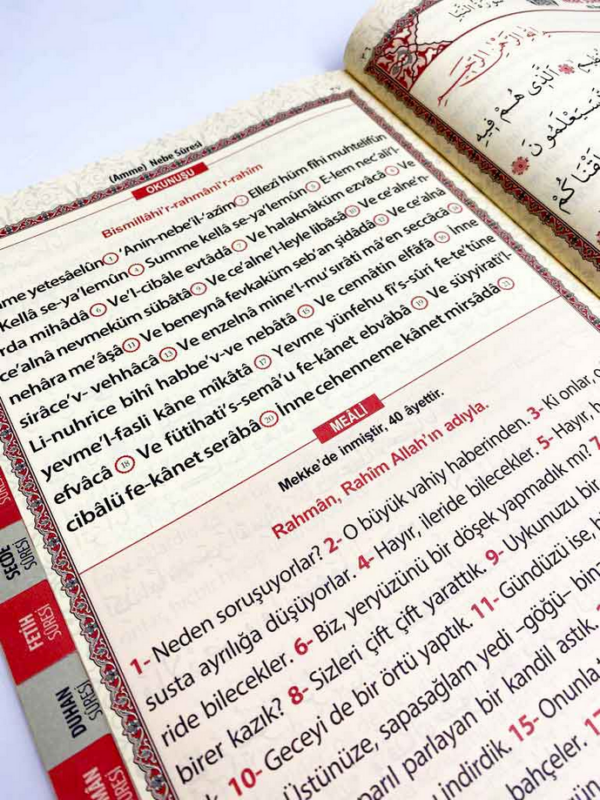 (Amme) Nebe Sûresi
OKUNUŞU
Bismillâhi'r-rahmâni'r-rahîm
yetesâelûn 1 'Anin-nebe'il-'azîm 2 Ellezî hüm fîhi muhtelifûn
Kellâ se-ya'lemûn 4 Summe kellâ se-ya'lemûn 5 E-lem nec'ali'l-
mihâdâ 6 Ve'l-cibâle evtâdâ 7 Ve halaknâküm ezvâcâ 8 Ve
ce'alnâ nevmeküm sübâtâ 9 Ve ce'alne'l-leyle libâsâ 10 Ve ce'alne'n-
nehâra me'âşâ 11 Ve beneynâ fevkaküm seb'an şidâdâ 12 Ve ce'alnâ
sirâce'v- vehhâcâ 13 Ve enzelnâ mine'l-mu'sırâti mâ'en seccâcâ 14
Li-nuhrice bihî habbe'v-ve nebâtâ 15 Ve cennâtin elfâfâ 16 İnne
yevme'l-fasli kâne mîkâtâ 17 Yevme yünfehu fi's-sûri fe-te'tûne
efvâcâ 18 Ve fütihati's-semâ'u fe-kânet ebvâbâ 19 Ve süyyirati'l-
cibâlü fe-kânet serâbâ 20 İnne cehenneme kânet mirsâdâ 21
MEÂLİ
Mekke'de inmiştir. 40 âyettir.
Rahmân, Rahîm Allah'ın adıyla.
1- Neden soruşuyorlar? 2- O büyük vahiy haberinden. 3- Ki onlar,
susta ayrılığa düşüyorlar. 4- Hayır, ileride bilecekler. 5- Hayır,
ride bilecekler. 6- Biz, yeryüzünü bir döşek yapmadık mı? 7
birer kazık? 8- Sizleri çift çift yarattık. 9- Uykunuzu bir
10- Geceyi de bir örtü yaptık. 11- Gündüzü ise,
Üstünüze, sapasağlam yedi –göğü–
parıl parlayan bir kandil astık.
indirdik. 15- Onunla
bahçeler.
SECDE SÛRESİ
FETİH SÛRESİ
DUHAN SÛRESİ
SÛRESİ
بِسْمِ اللّٰهِ الرَّحْمٰنِ الرَّحِيمِ
اَلَّذٖى هُمْ فٖيهِ